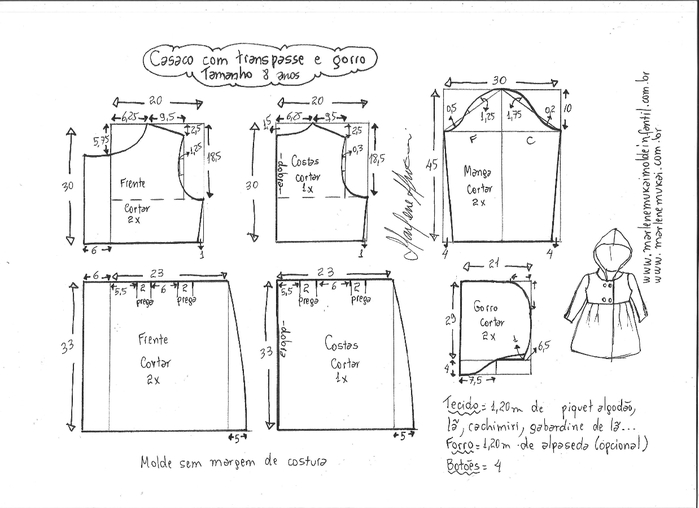 Casaco com transpasse e gorro
Tamanho 8 anos
20
6,25 9,5
5,75
2,5
1,25
18,5
30
Frente
Cortar
2x
6
1
20
6,25 9,5
1,5
2,5
0,3
18,5
30
dobra
Costas
cortar
1x
1
30
0,5
1,25
1,75
0,2
10
F C
45
Manga
Cortar
2x
4 4
Marlene Mukai
www.marlenemukaimoldeinfantil.com.br
www.marlenemukai.com.br
6 23
5,5 2 6 2
prega prega
33
Frente
Cortar
2x
5
23
5,5 2 6 2
prega prega
33
dobra
Costas
Cortar
1x
5
21
29
Gorro
Cortar
2x
6,5
4
7,5
Tecido = 1,20m de piquet algodão,
lã, cachimiri, gabardine de lã...
Forro = 1,20m de alpaseda (opcional)
Botões = 4
Molde sem margem de costura